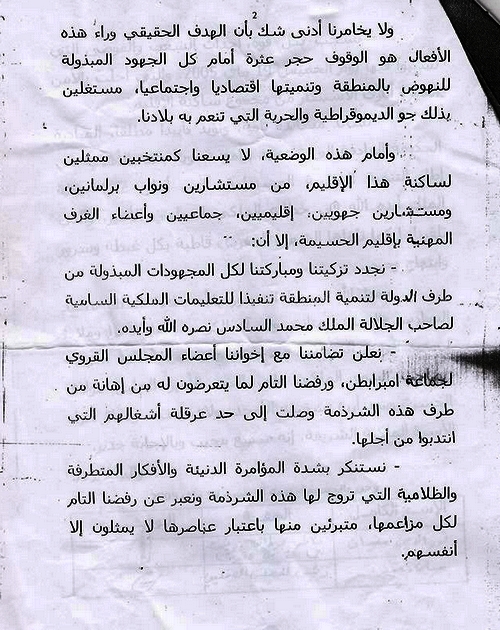 2
ولا يخامرنا أدنى شك بأن الهدف الحقيقي وراء هذه
الأفعال هو الوقوف حجر عثرة أمام كل الجهود المبذولة
للنهوض بالمنطقة وتنميتها اقتصاديا واجتماعيا، مستغلين
بذلك جو الديموقراطية والحرية التي تنعم به بلادنا.
وأمام هذه الوضعية، لا يسعنا كمنتخبين ممثلين
لساكنة هذا الإقليم، من مستشارين ونواب برلمانين،
ومستشارين جهويين، إقليميين، جماعيين وأعضاء الغرف
المهنية بإقليم الحسيمة، إلا أن:
- نجدد تزكيتنا ومباركتنا لكل المجهودات المبذولة من
طرف الدولة لتنمية المنطقة تنفيذا للتعليمات الملكية السامية
لصاحب الجلالة الملك محمد السادس نصره الله وأيده.
- نعلن تضامننا مع إخواننا أعضاء المجلس القروي
لجماعة امرابطن، ورفضنا التام لما يتعرضون له من إهانة من
طرف هذه الشرذمة وصلت إلى حد عرقلة أشغالهم التي
انتدبوا من أجلها.
- نستنكر بشدة المؤامرة الدنيئة والأفكار المتطرفة
والظلامية التي تروج لها هذه الشرذمة ونعبر عن رفضنا التام
لكل مزاعمها، متبرئين منها باعتبار عناصرها لا يمثلون إلا
أنفسهم.